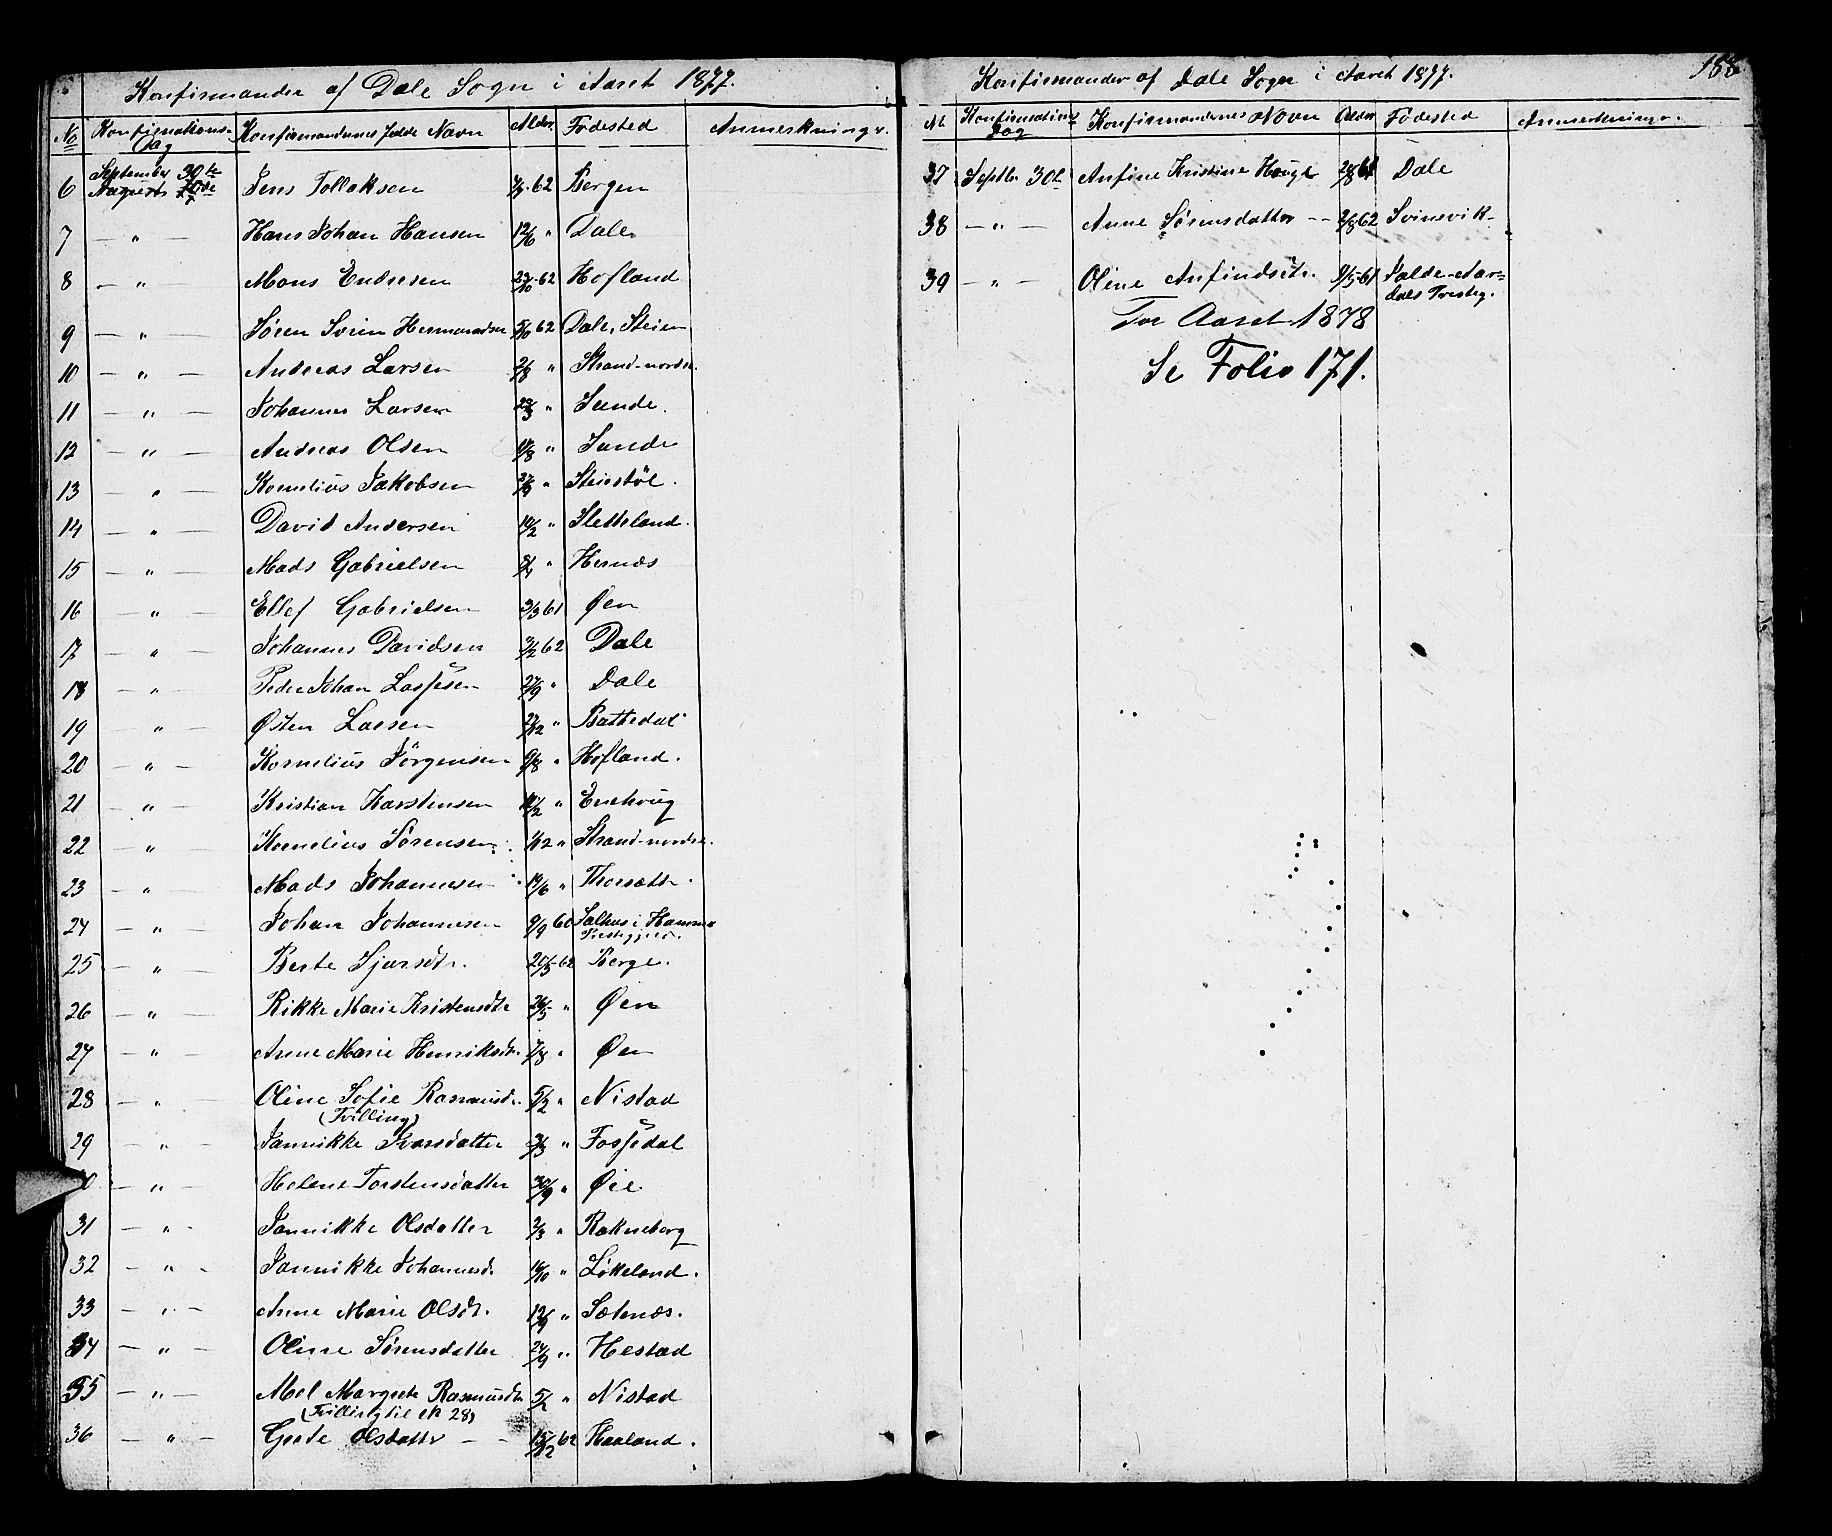 Konfirmander af Dale Sogn i Aaret 1877.
No Konfirmations- Dag Konfirmandernes fulde Navn Alder Fødested Anmerkninger.
6 September 30te Jens Tollaksen 62 Bergen
7 — " — Hans Johan Hansen 12/6 " Dale
8 — " — Mons Endresen 62 Hofland
9 — " — Søren Sviin Hermandsen 5/10 62 Dale, Steien
10 — " — Andreas Larsen " Strand-nordre.
11 — " — Johannes Larsen " Sande.
12 — " — Andreas Olsen " Sande
13 — " — Kornelius Jakobsen " Steiestøl.
14 — " — David Andersen " Sletteland.
15 — " — Mads Gabrielsen " Hernæs
16 — " — Ellef Gabrielsen 3/3 61 Øen
17 — " — Johannes Davidsen 3/2 62 Dale
18 — " — Peder Johan Lassesen 27/9 " Dale
19 — " — Østen Larsen " Battedal
20 — " — Kornelius Jørgensen 9/8 " Hofland.
21 — " — Kristian Karstensen " Enehoug
22 — " — Kornelius Sørensen " Strand-nordre.
23 — " — Mads Johannesen 19/6 " Thorsætt
24 — " — Johan Johannesen 9/9 60 Salhus i Hammer
Prestegjeld.
25 — " — Berte Sjursdtr. 62 Berge.
26 — " — Rikke Marie Kristensdtr 26/5 " Øen
27 — " — Anne Marie Henriksdtr. 7/8 " Øen
28 — " — Oline Sofie Rasmusdtr. 5/2 " Nistad
(Tvilling)
29 — " — Jannikke Ivarsdatter " Fossedal
— " — Helene Torstensdatter 30/9 " Øie
31 — " — Jannikke Olsdatter 2/3 " Rakneberg
32 — " — Jannikke Johannesd. " Løkeland.
33 — " — Anne Marie Olsdt. 12/9 " Sætenæs.
34 — " — Oline Sørensdatter 24/9 " Hestad
35 — " — Mol Margrete Rasmusdtr 5/2 " Nistad
(Tvilling til No 28)
36 — " — Gjerte Olsdatter — 62 Haaland.
Konfirmander af Dale Sogn i Aaret 1877. 188
No. Konfirmations Dag Konfirmandernes Navn Alder Fødested Anmerkninger.
37 Septbr 30te Anfine Kristine Hauge 61 Dale
38 — " — Anne Sørensdatter — 2/8 62 Svinevik
39 — " — Oline Anfindsdtr. 61 Aar-
dals Presteg.
For Aaret 1878
Se Folio 171.